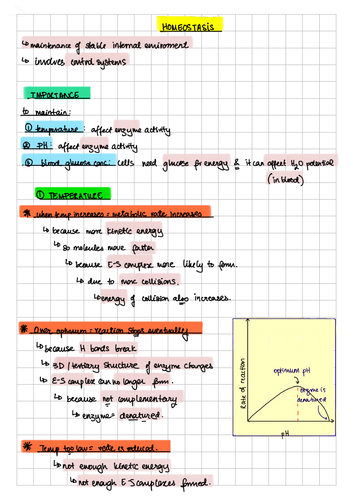 HOMEOSTASIS
↳ maintenance of stable internal enviroment
↳ involves control systems
IMPORTANCE
to maintain:
① temperature: affect enzyme activity
② pH: affect enzyme activity
③ blood glucose conc: cells need glucose for energy & it can affect H₂O potential
(in blood)
① TEMPERATURE
* When temp increases = metabolic rate increases
↳ because more kinetic energy
↳ so molecules move faster
↳ because E-S complex more likely to form.
↳ due to more collisions.
↳ energy of collision also increases.
* Over optimum = reaction stops eventually
↳ because H bonds break
↳ 3D / tertiary structure of enzyme changes
↳ E-S complex can no longer form.
↳ because not complementary
↳ enzyme = denatured.
Rate of reaction
optimum pH
enzyme is
denatured
pH
* Temp too low = rate is reduced.
↳ not enough kinetic energy
↳ not enough E-S complexes formed.